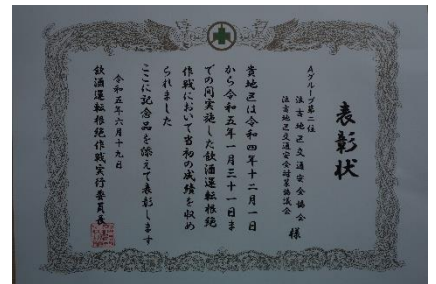 表彰状
Aグループ第二位
住吉地区交通安全協会
住吉地区交通安全対策協議会
様
貴地区は令和四年十二月一日
から令和五年一月三十一日ま
での間実施した飲酒運転根絶
作戦において当初の成績を収め
られました
ここに記念品を添えて表彰します
令和五年六月十九日
飲酒運転根絶作戦実行委員長